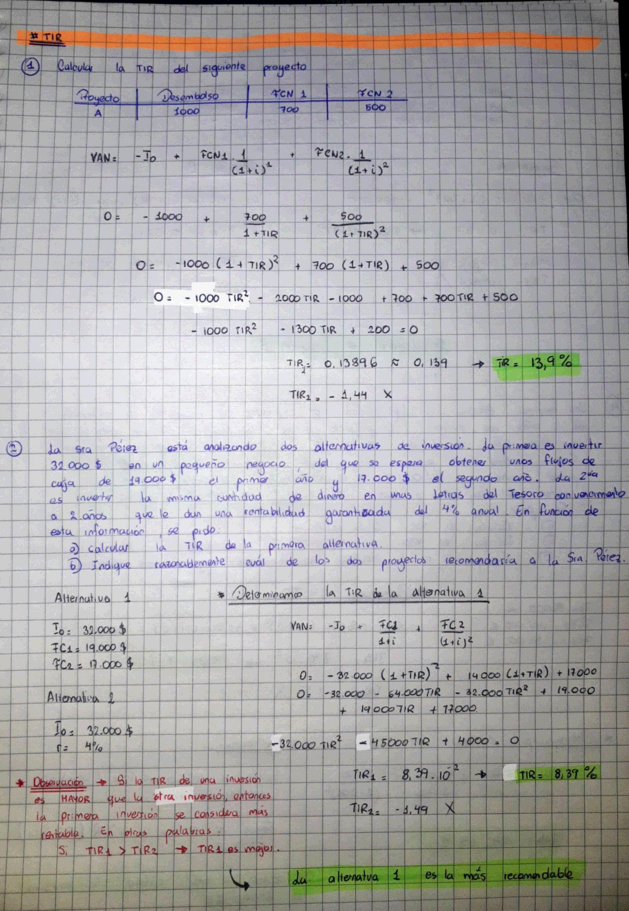 # TIR
① Calcular la TIR del siguiente proyecto
Proyecto Desembolso FCN 1 FCN 2
A 1000 700 500
VAN = -I₀ + FCN1 · 1/(1+i)² + FCN2 · 1/(1+i)²
0 = - 1000 + 700/(1+TIR) + 500/(1+TIR)²
0 = -1000 (1+TIR)² + 700 (1+TIR) + 500
0 = - 1000 TIR² - 2000 TIR - 1000 + 700 + 700 TIR + 500
- 1000 TIR² - 1300 TIR + 200 = 0
TIR₁ = 0,13896 ≈ 0,139 → TIR = 13,9 %
TIR₂ = - 1,44 X
② La Sra Pérez está analizando dos alternativas de inversión. La primera es invertir
32.000 $ en un pequeño negocio, del que se espera obtener unos flujos de
caja de 19.000 $ el primer año y 17.000 $ el segundo año. La 2da
es invertir la misma cantidad de dinero en unas letras del Tesoro con vencimiento
a 2 años que le dan una rentabilidad garantizada del 4% anual. En función de
esta información, se pide.
a) calcular la TIR de la primera alternativa.
b) Indique razonablemente cuál de los dos proyectos recomendaría a la Sra Pérez.
Alternativa 1
• Determinamos la TIR de la alternativa 1
I₀ = 32.000 $
FC1 = 19.000 $
FC2 = 17.000 $
VAN = -I₀ + FC1/(1+i) + FC2/(1+i)²
0 = -32.000 (1+TIR)² + 19000 (1+TIR) + 17000
0 = -32.000 - 64.000 TIR - 32.000 TIR² + 19.000
+ 19000 TIR + 17000
Alternativa 2
I₀ = 32.000 $
r = 4%
-32,000 TIR² - 45000 TIR + 4000 = 0
TIR₁ = 8,39 · 10⁻² → TIR = 8,39 %
TIR₂ = -1,49 X
* Observación → Si la TIR de una inversión
es MAYOR que la otra inversió, entonces
la primera inversión se considera más
rentable. En otras palabras.
Si TIR1 > TIR2 → TIR1 es mejor.
↳ La alternatva 1 es la más recomendable